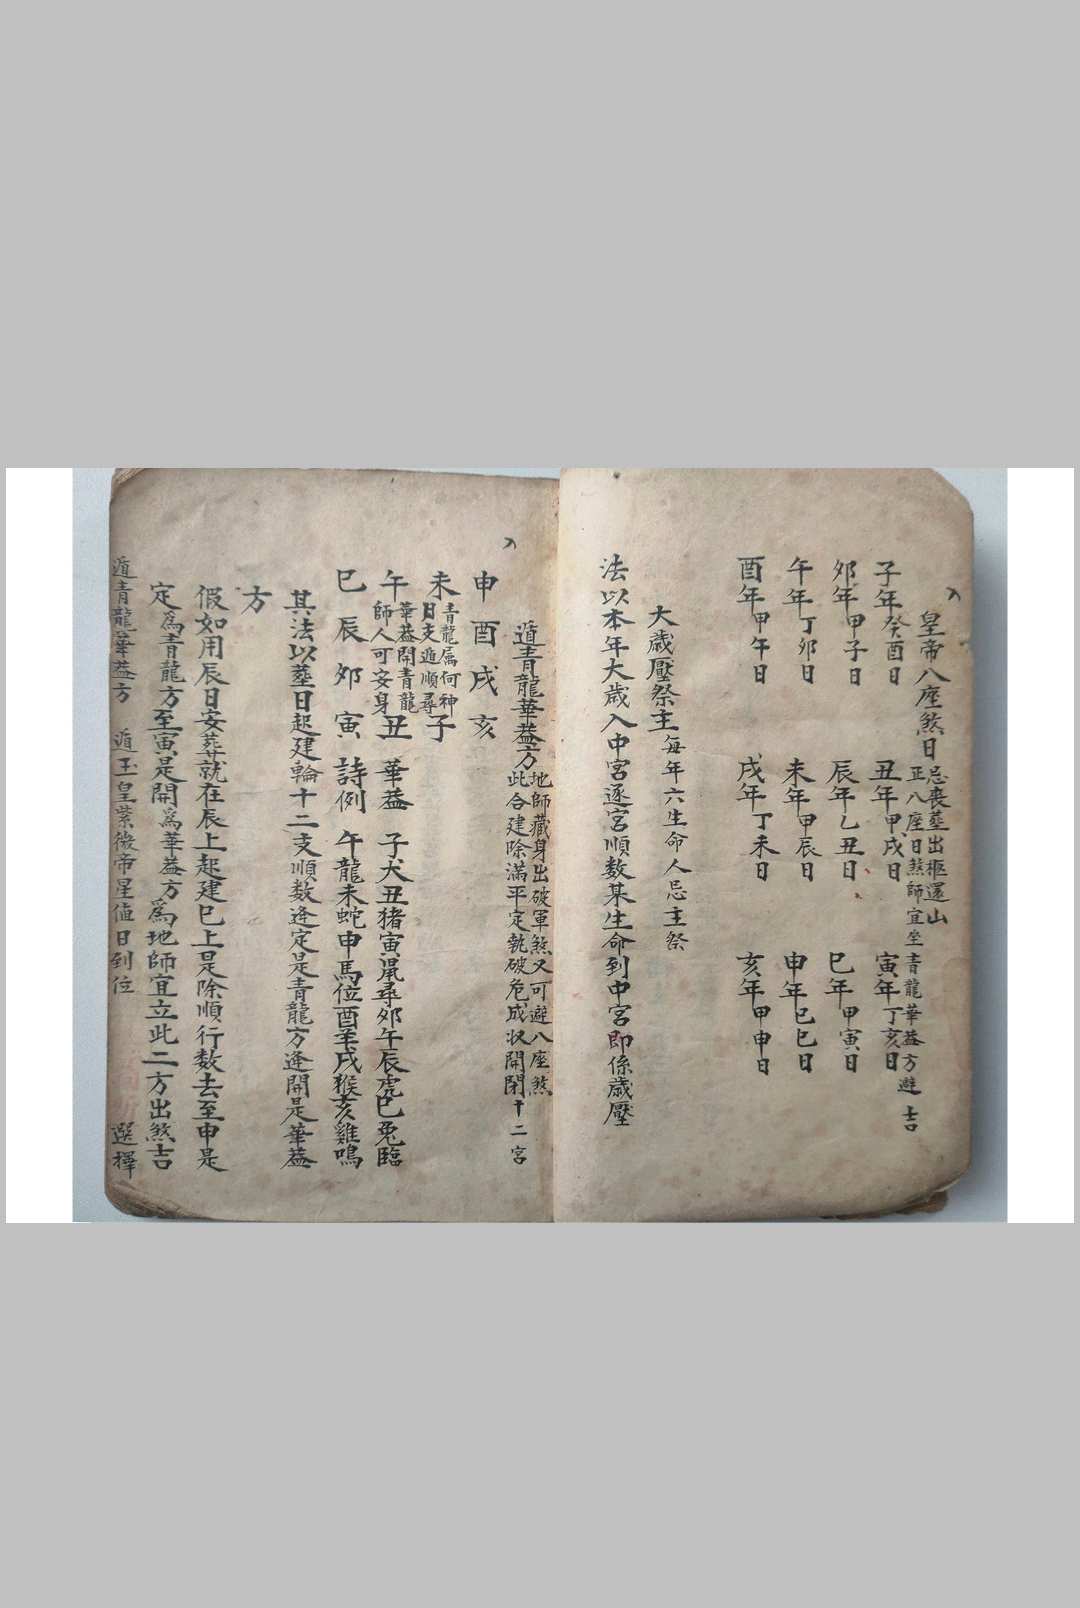 皇帝八座煞日 忌喪塟出柩還山 正八座日煞師宜坐青龍華葢方避 吉
子年癸酉日 丑年甲戌日 寅年丁亥日
卯年甲子日 辰年乙丑日 巳年甲寅日
午年丁卯日 未年甲辰日 申年巳巳日
酉年甲午日 戌年丁未日 亥年甲申日
大歲壓祭主 每年六生命人忌主祭
法以本年大歲入中宮逐宮順数某生命到中宮即係歲壓
遁青龍華葢方 地師藏身出破軍煞又可避八座煞 此合建除滿平定執破危成収開閉十二宮
申酉戌亥
未 青龍属何神 日支遁順尋 子
午 華葢開青龍 師人可安身 丑 華葢 子犬丑猪寅鼠尋卯午辰虎巳兎臨
巳辰卯寅 詩例 午龍未蛇申馬位酉羊戌猴亥雞鳴
其法以塟日起建輪十二支順数逢定是青龍方逢開是華葢
方
假如用辰日安葬就在辰上起建巳上是除順行数去至申是
定為青龍方至寅是開為華葢方為地師宜立此二方出煞吉
遁青龍華葢方 遁玉皇紫微帝星值日到位 選擇